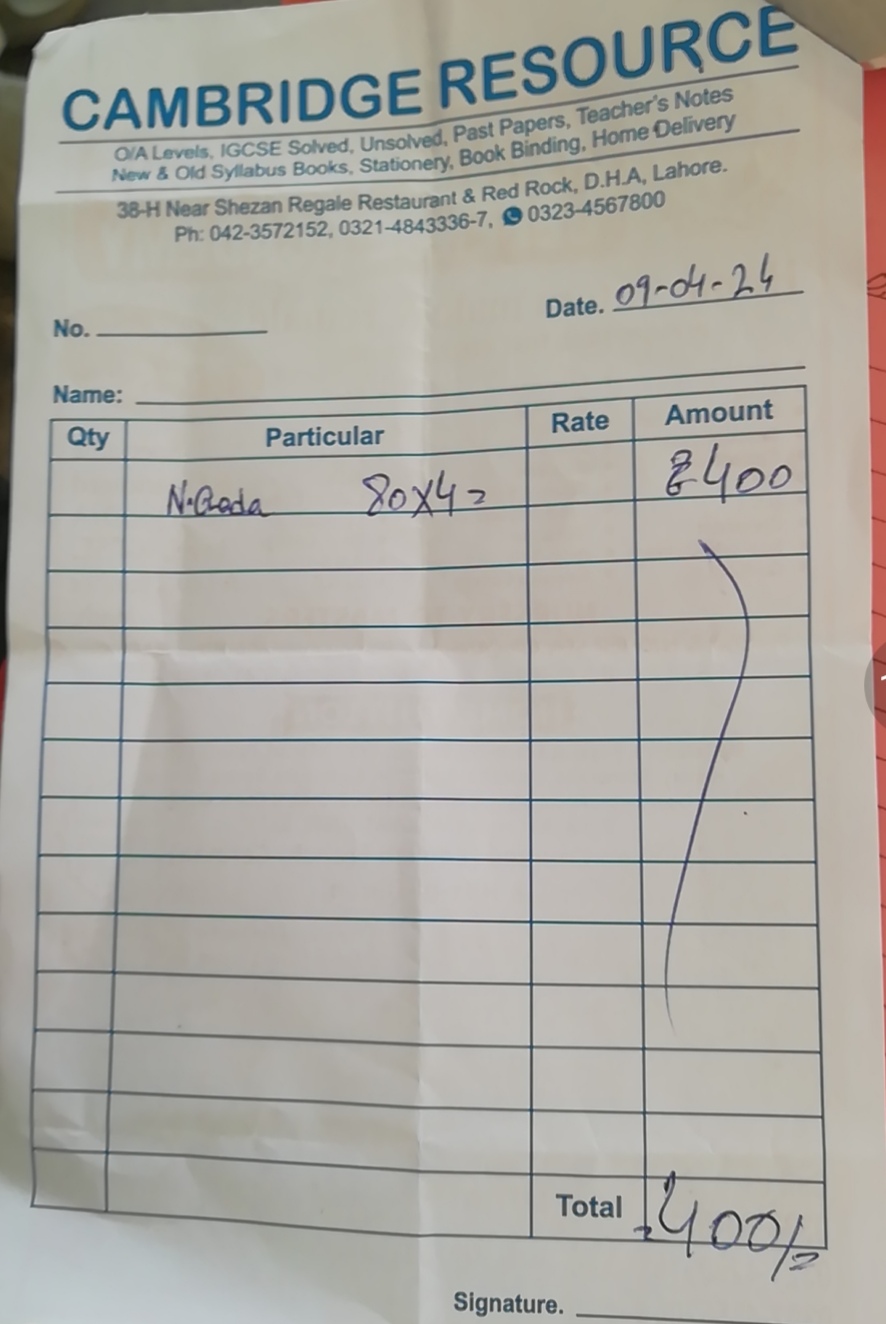 CAMBRIDGE RESOURCE
O/A Levels, IGCSE Solved, Unsolved, Past Papers, Teacher's Notes
New & Old Syllabus Books, Stationery, Book Binding, Home Delivery
38-H Near Shezan Regale Restaurant & Red Rock, D.H.A, Lahore.
Ph: 042-3572152, 0321-4843336-7, 0323-4567800
No. Date. 09-04-24
Name:
Qty Particular Rate Amount
80x4= 400
Total 400/=
Signature.